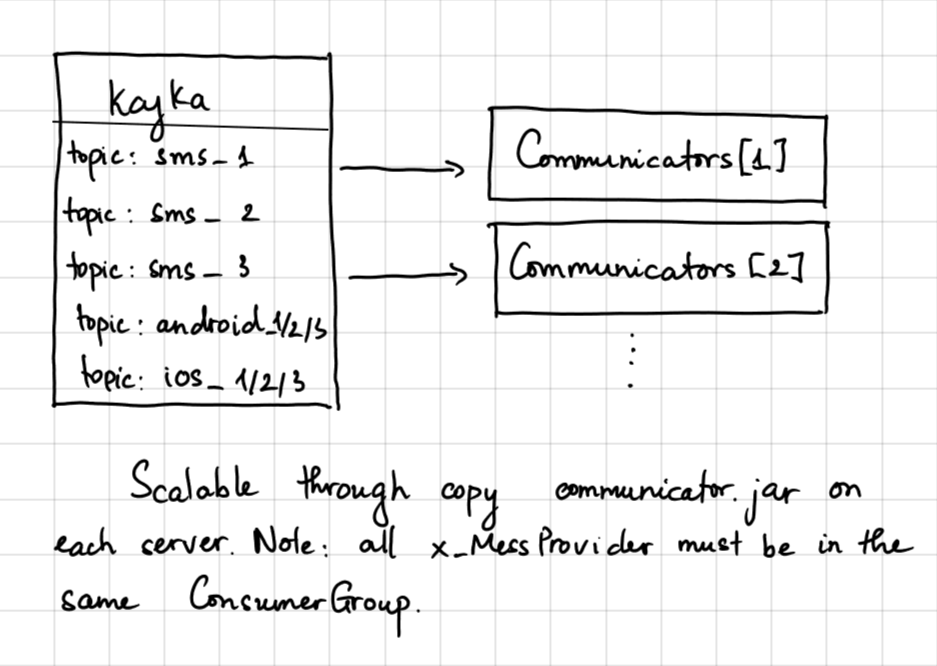 Kafka
topic: sms_1
topic: sms_2
topic: sms_3
topic: android_1/2/3
topic: ios_1/2/3
Communicators[1]
Communicators [2]
Scalable through copy communicator.jar on
each server. Note: all x_MessProvider must be in the
same ConsumerGroup.